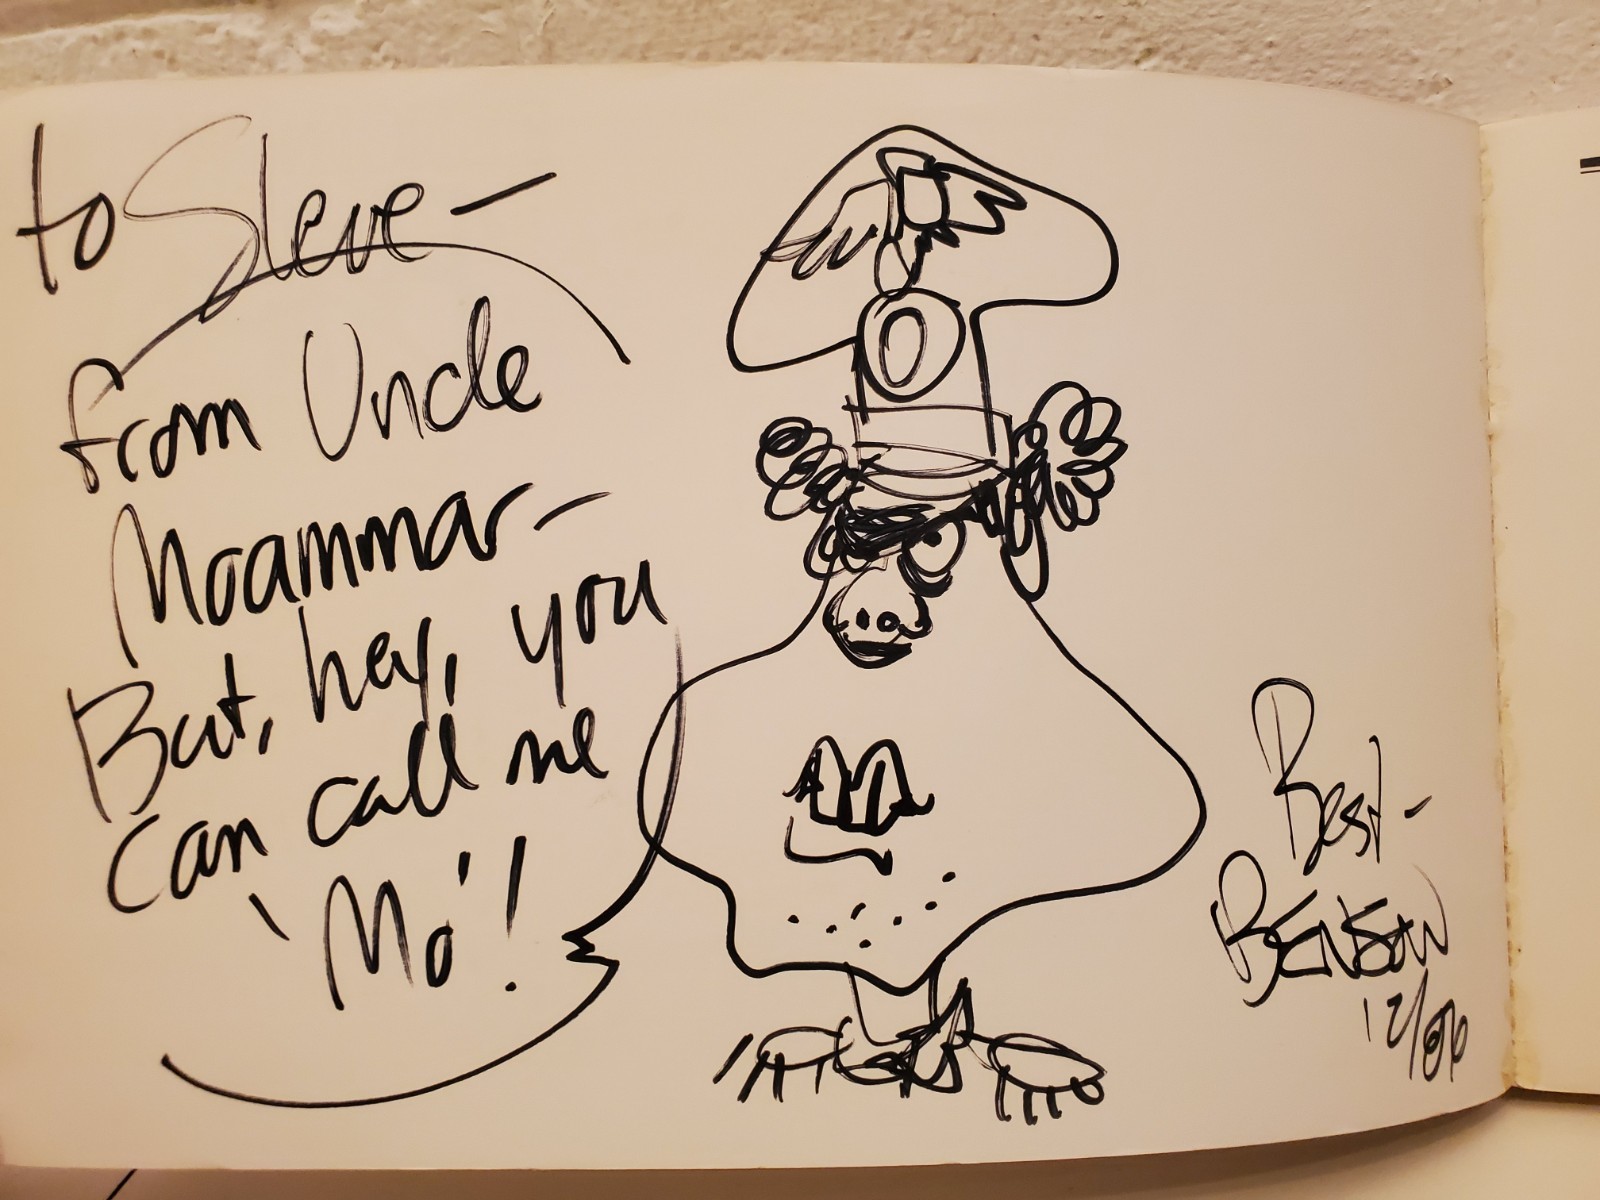 to Steve –
from Uncle
Moammar –
But, hey, you
can call me
'Mo'!
Best –
BENSON
12/86